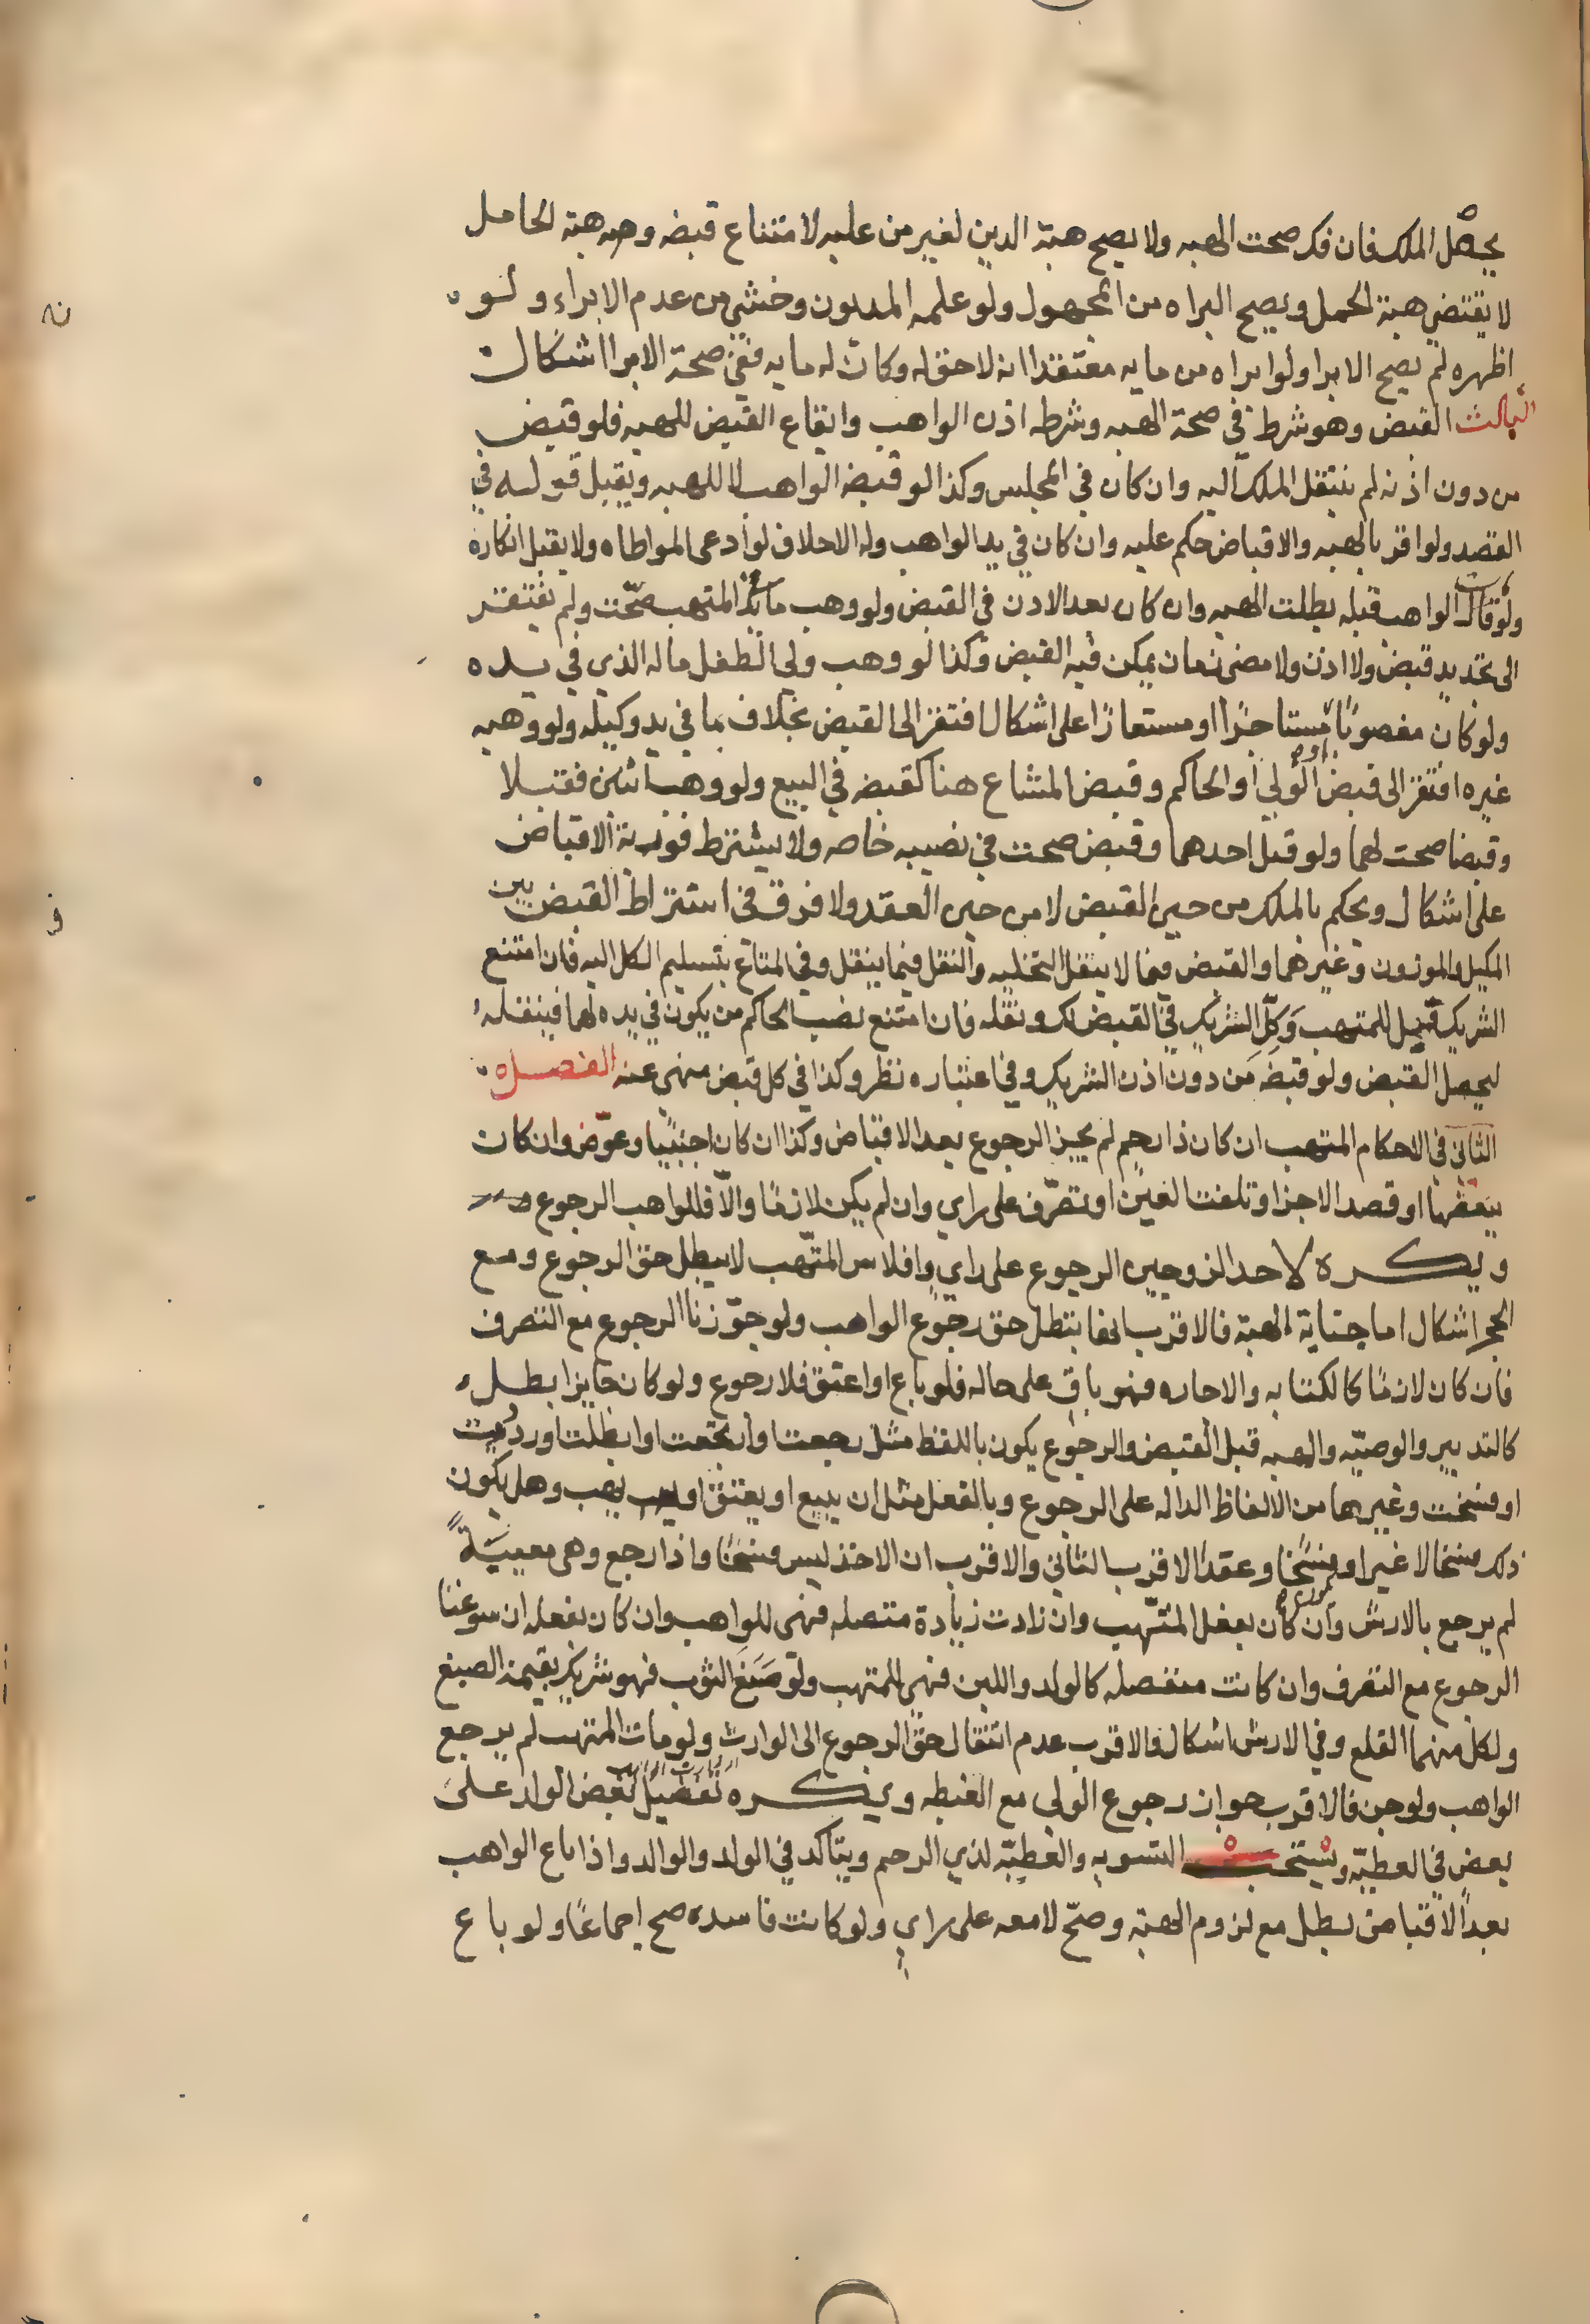 يحصل الملك فان فك صحت الهبه ولا يصح هبة الدين لغير من عليه لامتناع قبضه وهبة الحامل
لا يقتضي هبة الحمل ويصح البراه من المجهول ولو علمه المديون وخشي من عدم الابراء ولو
اظهره لم يصح الابرا ولو ابراه من مايه معتقدا انه لا حق له وكان له مايه ففي صحة الابرا اشكال
الثالث القبض وهو شرط في صحة الهبه وشرطه اذن الواهب وايقاع القبض للهبه فلو قبض
من دون اذنه لم ينتقل الملك اليه وان كان في المجلس وكذا لو قبضه الواهب لا للهبه ويقبل قوله في
القصد ولو اقر بالهبه والاقباض حكم عليه وان كان في يد الواهب وله الاحلاف لو ادعى المواطاه ولا يقبل انكاره
ولو مات الواهب قبله بطلت الهبه وان كان بعد الاذن في القبض ولو وهب ما في يد المتهب صحت ولم يفتقر
الى تجديد قبض ولا اذن ولا مضى زمان يمكن فيه القبض وكذا لو وهب ولي الطفل ماله الذي في يده
ولو كان مغصوبا او مستاجرا او مستعارا على اشكال افتقر الى القبض بخلاف ما في يد وكيله ولو وهبه
غيره افتقر الى قبض الولي او الحاكم وقبض المشاع هنا كقبضه في البيع ولو وهب اثنين فقبلا
وقبضا صحت لهما ولو قبل احدهما وقبض صحت في نصيبه خاصه ولا يشترط فورية الاقباض
على اشكال ويحكم بالملك من حين القبض لا من حين العقد ولا فرق في اشتراط القبض بين
المكيل والموزون وغيرهما والقبض فيما لا ينقل التخليه والنقل فيما ينقل وفي المتاع بتسليم الكل اليه فان امتنع
الشريك قيل للمتهب وكل الشريك في القبض لك ونقله فان امتنع نصب الحاكم من يكون في يده لهما فينقله
ليحصل القبض ولو قبضه من دون اذن الشريك وفي اعتباره نظر وكذا في كل قبض منهى عنه الفصل
الثاني في الاحكام المتهب ان كان ذا رحم لم يجز الرجوع بعد الاقباض وكذا ان كان اجنبيا وعوض وان كان
ببعضها او قصد الاجر او تلفت العين او تصرف على راي وان لم يكن لازما والا فللواهب الرجوع
ويكره لاحد الزوجين الرجوع على راي وافلاس المتهب لا يبطل حق الرجوع ومع
الحجر اشكال اما جناية الهبة فالاقرب انها تبطل حق رجوع الواهب ولو جوزنا الرجوع مع التصرف
فان كان لازما كالكتابه والاجاره فهو باق على حاله فلو باع او اعتق فلا رجوع ولو كان جايزا بطل
كالتدبير والوصيه والهبه قبل القبض والرجوع يكون باللفظ مثل رجعت وارتجعت او ابطلت او رددت
او فسخت وغيرها من الالفاظ الداله على الرجوع وبالفعل مثل ان يبيع او يعتق او يهب وهل يكون
ذلك فسخا لا غير او فسخا وعقدا الاقرب الثاني والاقرب ان الاخذ ليس فسخا واذا رجع وهى معيبة
لم يرجع بالارش وان كان بفعل المتهب وان زادت زيادة متصله فهى للواهب وان كان بفعله ان سوغنا
الرجوع مع التصرف وان كانت منفصله كالولد واللبن فهي للمتهب ولو صبغ الثوب فهو شريك بقيمة الصبغ
ولكل منهما القلع وفي الارش اشكال فالاقرب عدم انتقال حق الرجوع الى الوارث ولو مات المتهب لم يرجع
الواهب ولو جن فالاقرب جواز رجوع الولي مع الغبطه ويكره تفضيل بعض الولد على
بعض في العطية ويستحب التسويه والعطية لذي الرحم ويتاكد في الولد والوالد واذا باع الواهب
بعد الاقباض بطل مع لزوم الهبة وصح لا معه على راي ولو كانت فاسده صح اجماعا ولو باع